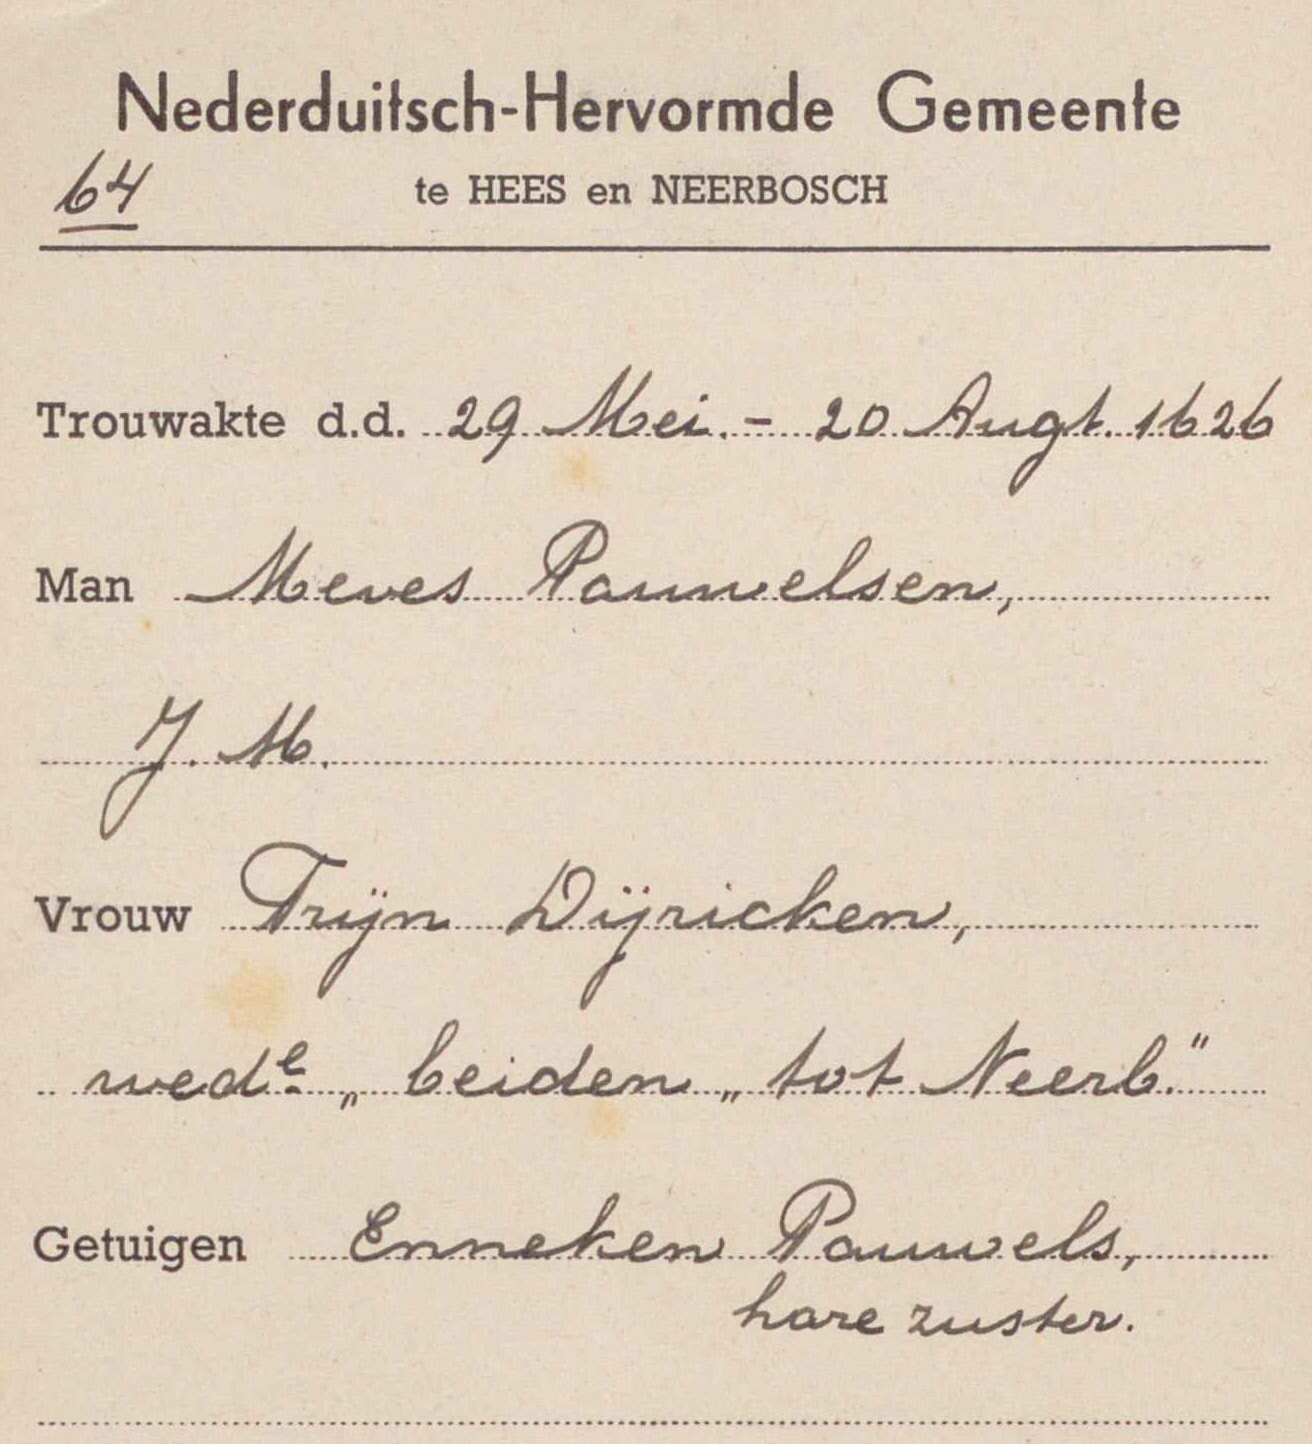 Nederduitsch-Hervormde Gemeente
64
te HEES en NEERBOSCH
Trouwakte d.d. 29 Mei. - 20 Augt. 1626
Man Meves Pauwelsen,
J. M.
Vrouw Trijn Dijricken,
wedᵉ „ beiden „ tot Neerb."
Getuigen Enneken Pauwels,
hare zuster.